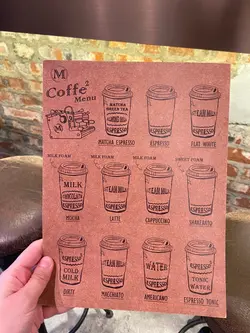 M
Coffe²
Menu
MATCHA
GREEN TEA
ESPRESSO
MATCHA ESPRESSO
ESPRESSO
ESPRESSO
STEAM MILK
ESPRESSO
FLAT WHITE
MILK FOAM
MILK
CHOCOLATE
ESPRESSO
MOCHA
MILK FOAM
STEAM MILK
ESPRESSO
LATTE
MILK FOAM
STEAM MILK
ESPRESSO
CAPPUCCINO
SWEET FOAM
ESPRESSO
SHAKERATO
COLD
MILK
ESPRESSO
DIRTY
STEAM MILK
ESPRESSO
MACCHIATO
WATER
ESPRESSO
AMERICANO
ESPRESSO
TONIC
WATER
ESPRESSO TONIC